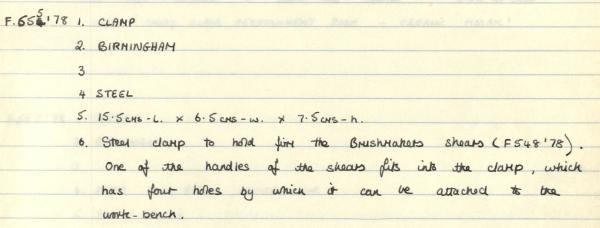 F.655'78 1. CLAMP
2. BIRMINGHAM
3
4 STEEL
5. 15.5cms-L. x 6.5cms-w. x 7.5cms-h.
6. Steel clamp to hold firm the Brushmakers shears (F548'78).
One of the handles of the shears fits into the clamp, which
has four holes by which it can be attached to the
work-bench.